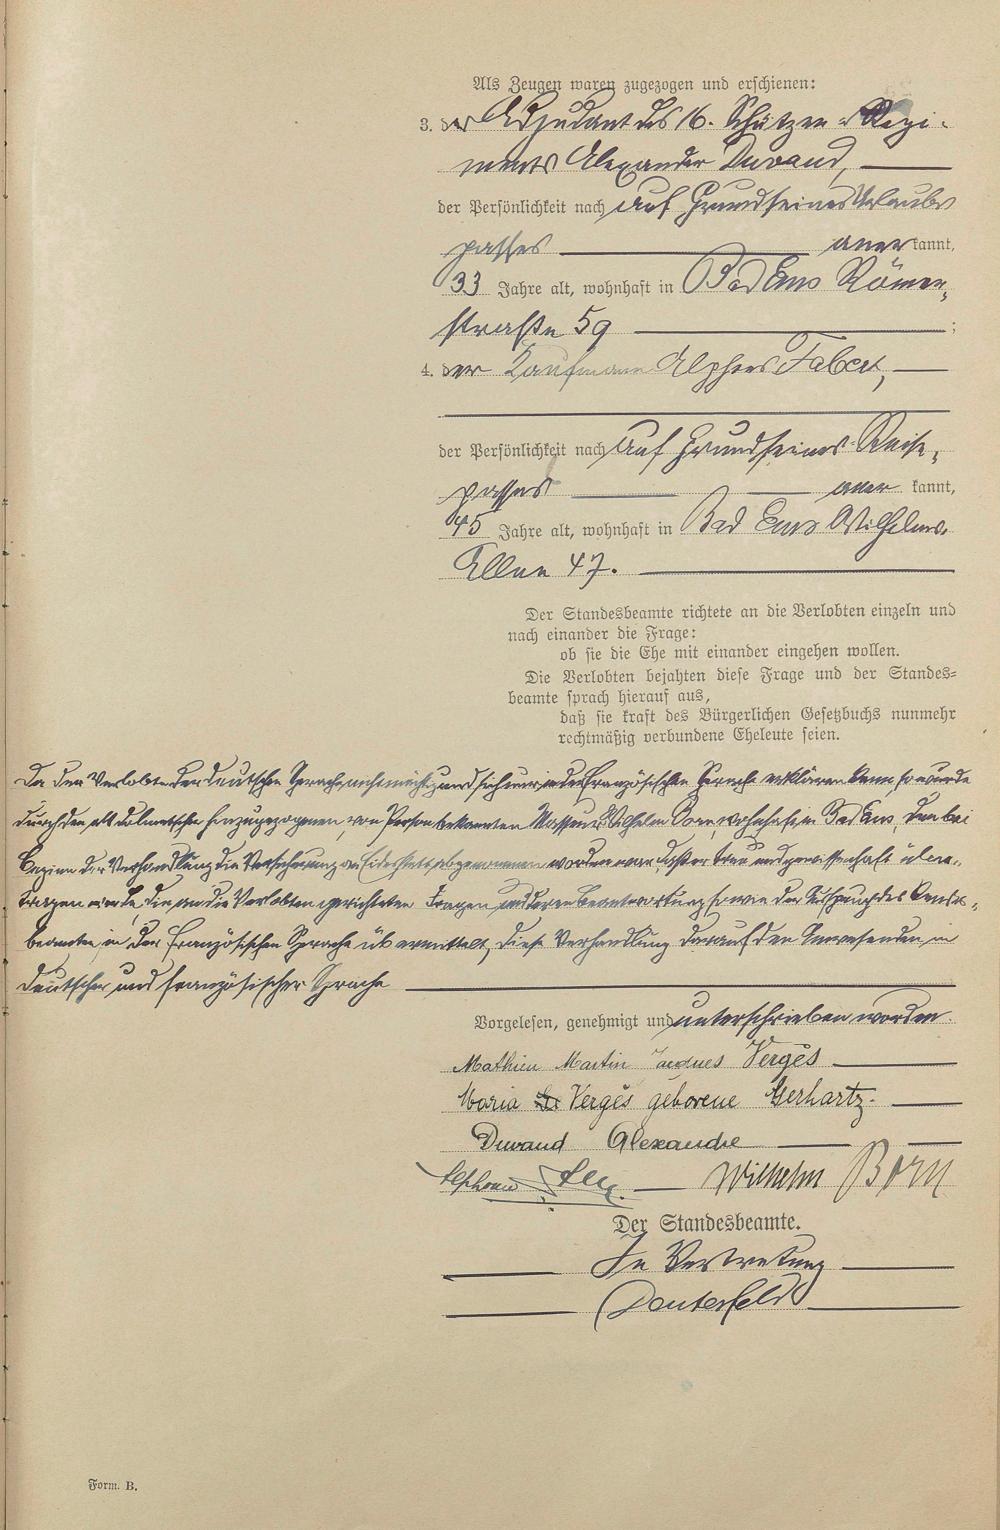 Als Zeugen waren zugezogen und erschienen:
3. der Adjudant des 16. Schützen-Regi-
ments Alexander Durand,
der Persönlichkeit nach auf Grund seines Urlaubs
passes anerkannt,
33 Jahre alt, wohnhaft in Bad Ems Römer-
straße 59 ;
4. der Kaufmann Alphons Faber,
der Persönlichkeit nach auf Grund seines Reise-
passes anerkannt,
45 Jahre alt, wohnhaft in Bad Ems Wilhelms-
Allee 47.
Der Standesbeamte richtete an die Verlobten einzeln und
nach einander die Frage:
ob sie die Ehe mit einander eingehen wollen.
Die Verlobten bejahten diese Frage und der Standes-
beamte sprach hierauf aus,
daß sie kraft des Bürgerlichen Gesetzbuchs nunmehr
rechtmäßig verbundene Eheleute seien.
Da der Verlobte der deutschen Sprache nicht mächtig und sich nur in der Französischen Sprache erklären kann, so wurde
durch den als Dolmetscher hinzugezogenen, von Person bekannten Masseur Wilhelm Born, wohnhaft in Bad Ems, dem bei
Beginn der Verhandlung die Versicherung an Eidesstatt abgenommen worden war, daß er treu und gewissenhaft über-
tragen werde, die an die Verlobten gerichteten Fragen und deren Beantwortung sowie der Ausspruch des Standes-
beamten, in der Französischen Sprache übermittelt, diese Verhandlung darauf den Anwesenden in
deutscher und französischer Sprache
Vorgelesen, genehmigt und unterschrieben worden.
Mathieu Martin Jacques Vergès
Maria Vergès geborene Gerhartz.
Durand Alexandre
Wilhelm Born
Der Standesbeamte.
In Vertretung
Form. B.